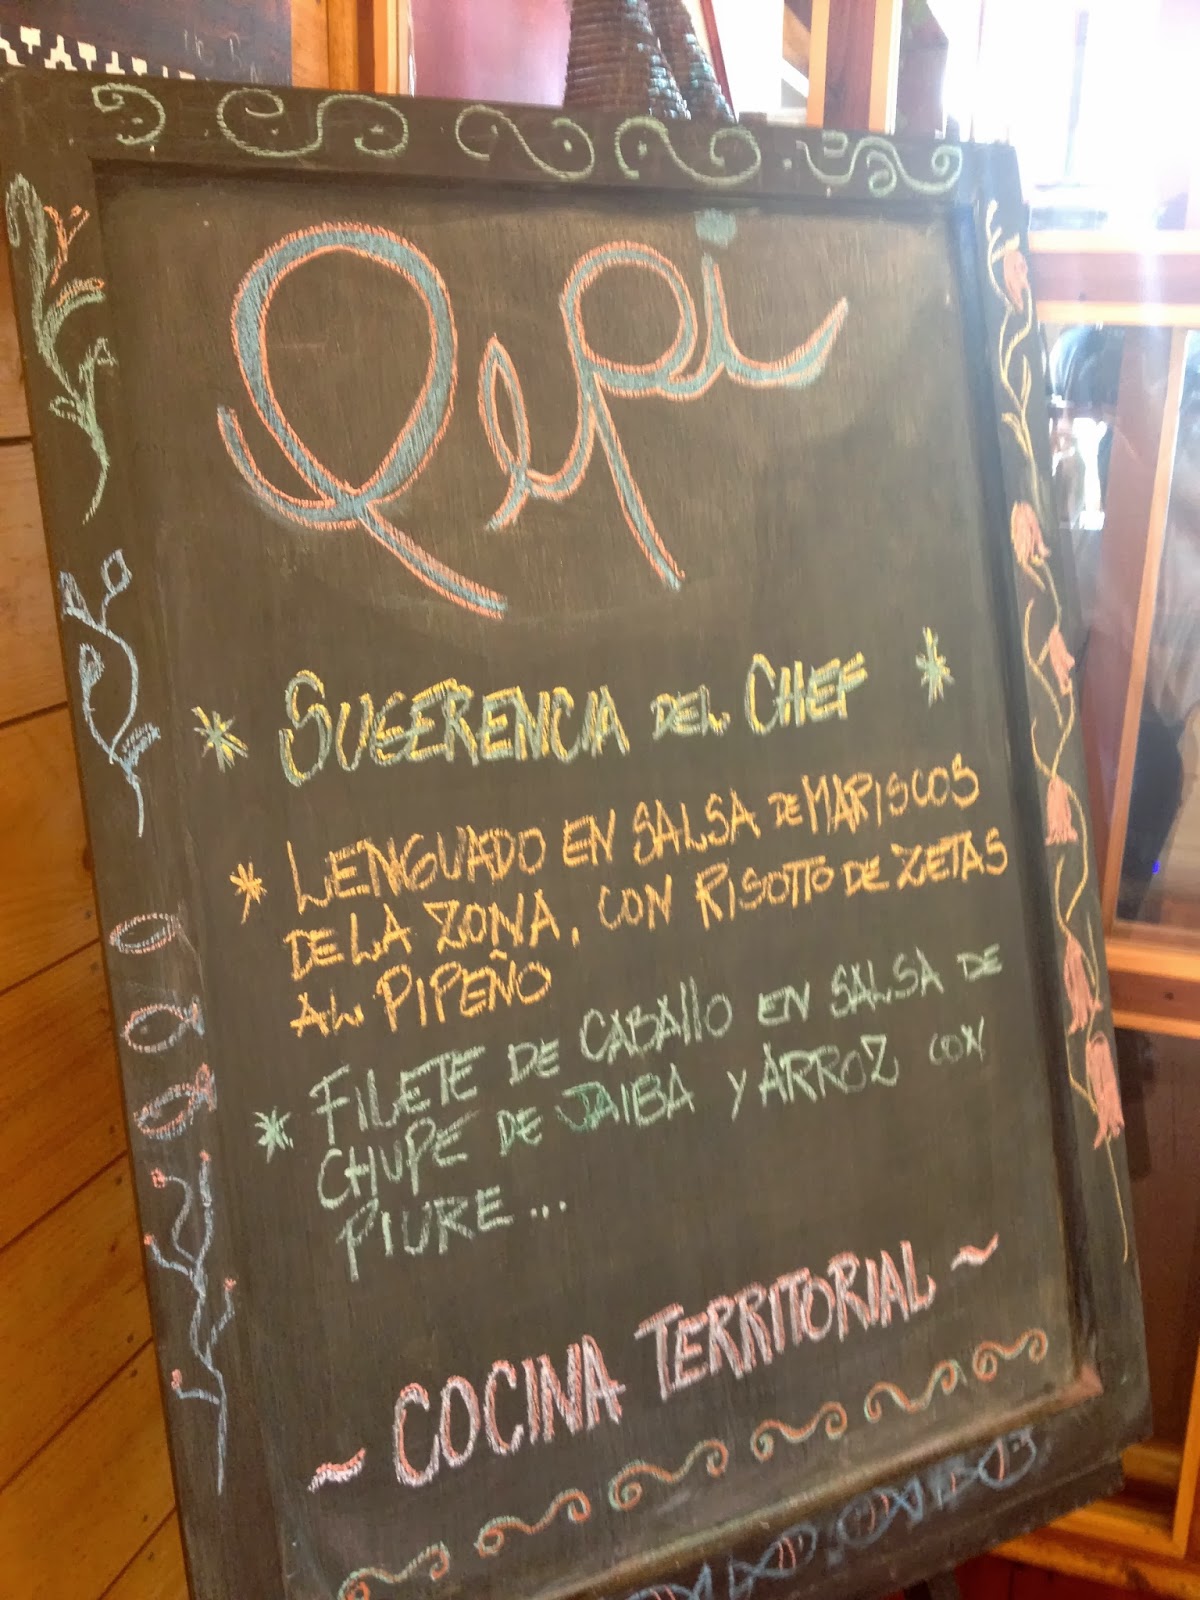 Qepi
* SUGERENCIA DEL CHEF *
* LENGUADO EN SALSA DE MARISCOS
DE LA ZONA, CON RISOTTO DE ZETAS
AL PIPEÑO
* FILETE DE CABALLO EN SALSA DE
CHUPE DE JAIBA Y ARROZ CON
PIURE...
~ COCINA TERRITORIAL ~